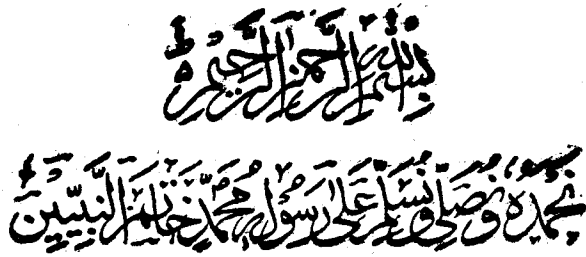 بِسْمِ اللهِ الرَّحْمٰنِ الرَّحِيْمِ ط
نَحْمَدُهٗ وَنُصَلِّيْ وَنُسَلِّمُ عَلٰى رَسُوْلِهٖ مُحَمَّدٍ خَاتَمِ النَّبِيِّيْنَ ط